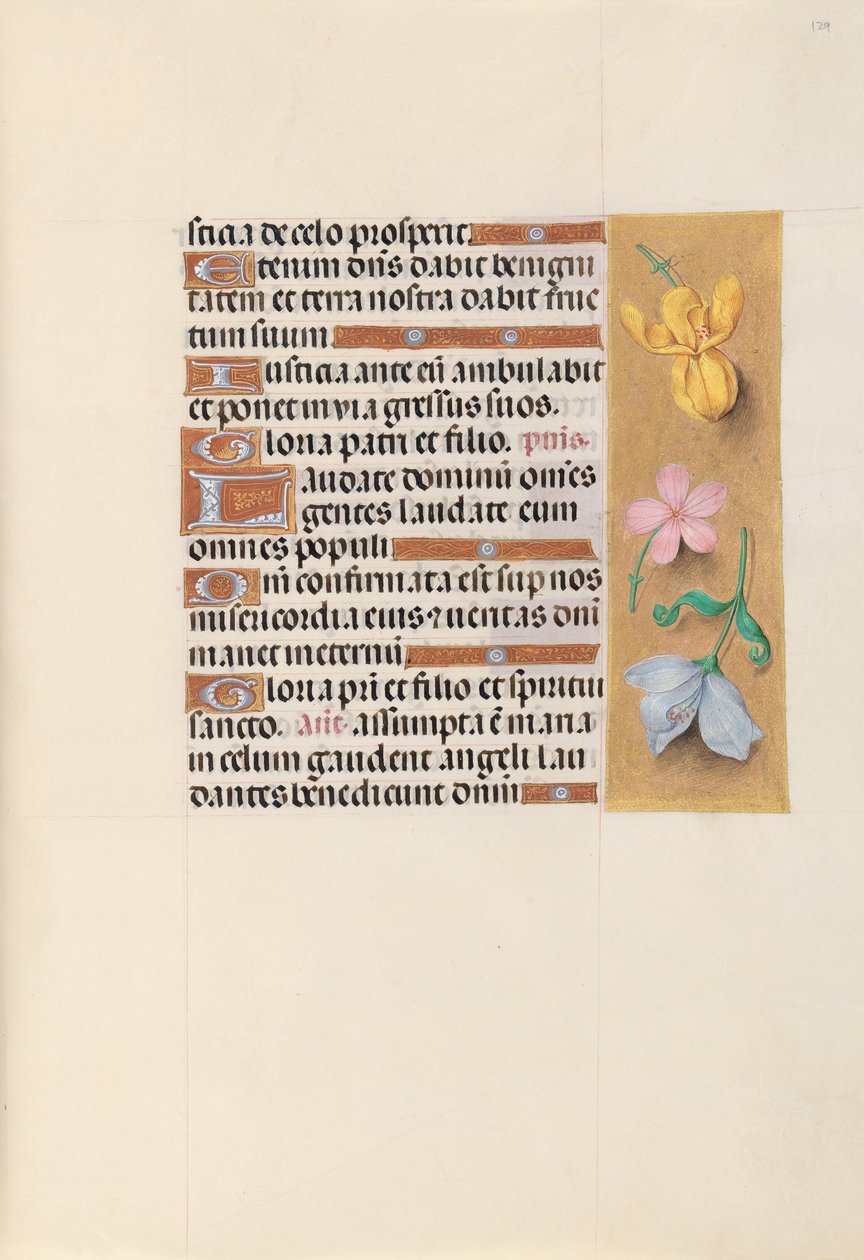 129
sticia de celo prosperit
Etenim dn̄s dabit benigni
tatem et terra nostra dabit fruc
tum suum
Iusticia ante eū ambulabit
et ponet in via gressus suos.
Gloria patri et filio. p̄uis.
Laudate dominū om̄es
gentes laudate eum
omnes populi
Qm̄ confirmata est sup nos
misericordia eius ⁊ ueritas dn̄i
manet in eternū
Gloria pr̄i et filio et spiritui
sancto. An̄t. assumpta ē maria
in celum gaudent angeli lau
dantes benedicunt dn̄m